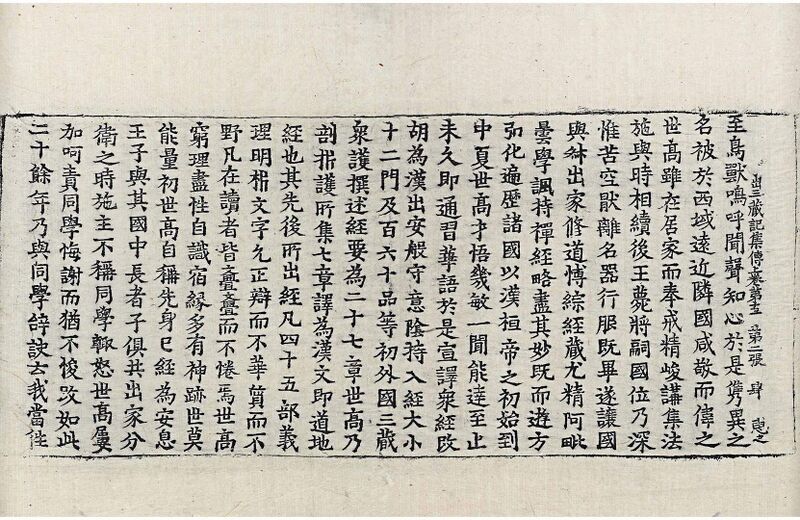 出三藏記集傳卷第十三 第二張 肆
至鳥獸鳴呼聞聲知心於是儁異之
名被於西域遠近隣國咸敬而偉之
世高雖在居家而奉戒精峻講集法
施與時相續後王薨將嗣國位乃深
惟苦空猒離名器行服既畢遂讓國
與叔出家修道博綜經藏尤精阿毗
曇學諷持禪經略盡其妙既而遊方
弘化遍歷諸國以漢桓帝之初始到
中夏世高才悟幾敏一聞能達至止
未久即通習華語於是宣譯衆經改
胡為漢出安般守意陰持入經大小
十二門及百六十品等初外國三藏
衆護撰述經要為二十七章世高乃
剖析護所集七章譯為漢文即道地
經也其先後所出經凡四十五部義
理明析文字允正辯而不華質而不
野凡在讀者皆亹亹而不惓焉世高
窮理盡性自識宿緣多有神跡世莫
能量初世高自稱先身已經為安息
王子與其國中長者子俱共出家分
衛之時施主不稱同學輒怒世高屢
加呵責同學悔謝而猶不悛改如此
二十餘年乃與同學辝訣云我當往